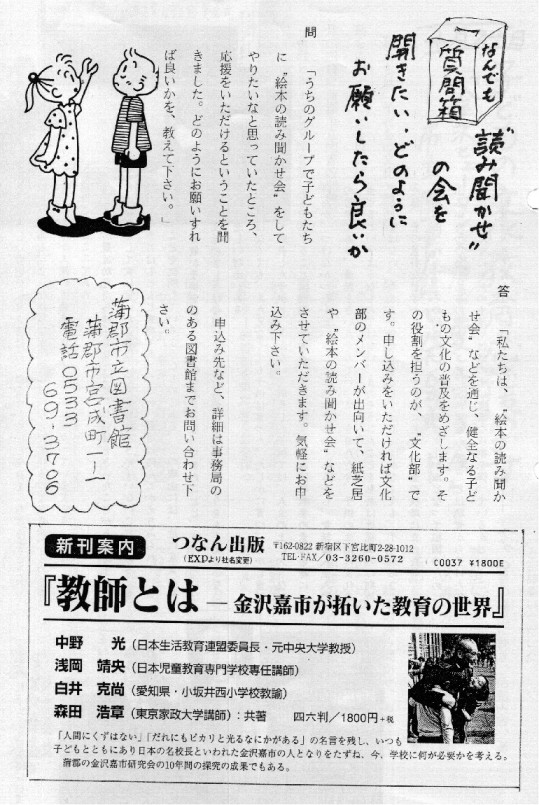 なんでも
質問箱
"読み聞かせ"
の会を
開きたい、どのように
お願いしたら良いか
問
「うちのグループで子どもたち
に"絵本の読み聞かせ会"をして
やりたいなと思っていたところ、
応援をいただけるということを聞
きました。どのようにお願いすれ
ば良いかを、教えて下さい。」
答
「私たちは、"絵本の読み聞か
せ会"などを通じ、健全なる子ど
もの文化の普及をめざします。そ
の役割を担うのが、"文化部"で
す。申し込みをいただければ文化
部のメンバーが出向いて、紙芝居
や"絵本の読み聞かせ会"などを
させていただきます。気軽にお申
込み下さい。
申込み先など、詳細は事務局の
のある図書館までお問い合わせ下
さい。
蒲郡市立図書館
蒲郡市宮成町1-1
電話0533
69-3706
新刊案内
つなん出版
(EXPより社名変更)
〒162-0822 新宿区下宮比町2-28-1012
TEL・FAX/03-3260-0572
C0037 ¥1800E
『教師とは―金沢嘉市が拓いた教育の世界』
中野 光(日本生活教育連盟委員長・元中央大学教授)
浅岡 靖央(日本児童教育専門学校専任講師)
白井 克尚(愛知県・小坂井西小学校教諭)
森田 浩章(東京家政大学講師):共著 四六判/1800円+税
「人間にくずはない」「だれにもピカリと光るなにかがある」の名言を残し、いつも
子どもとともにあり日本の名校長といわれた金沢嘉市の人となりをたずね、今、学校に何が必要かを考える。
蒲郡の金沢嘉市研究会の10年間の探究の成果でもある。